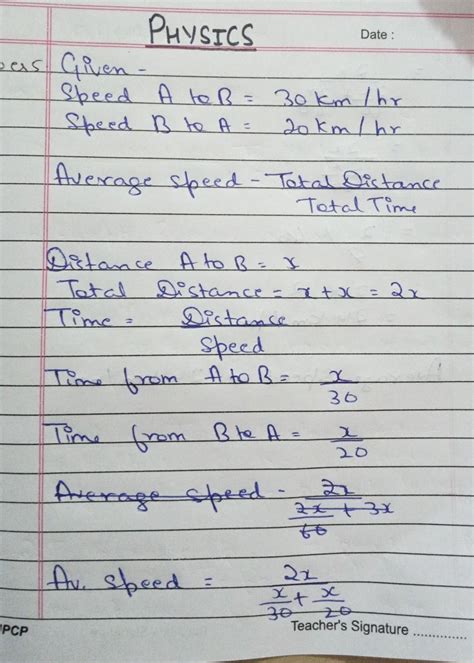 PHYSICS
Date :
Given -
Speed A to B = 30 km/hr
Speed B to A = 20 km/hr
Average speed - Total Distance
Total Time
Distance A to B = x
Total Distance = x + x = 2x
Time = Distance
Speed
Time from A to B = x
30
Time from B to A = x
20
Average speed - 2x
2x + 3x
60
Av. speed = 2x
x + x
30 20
PCP
Teacher's Signature ..............